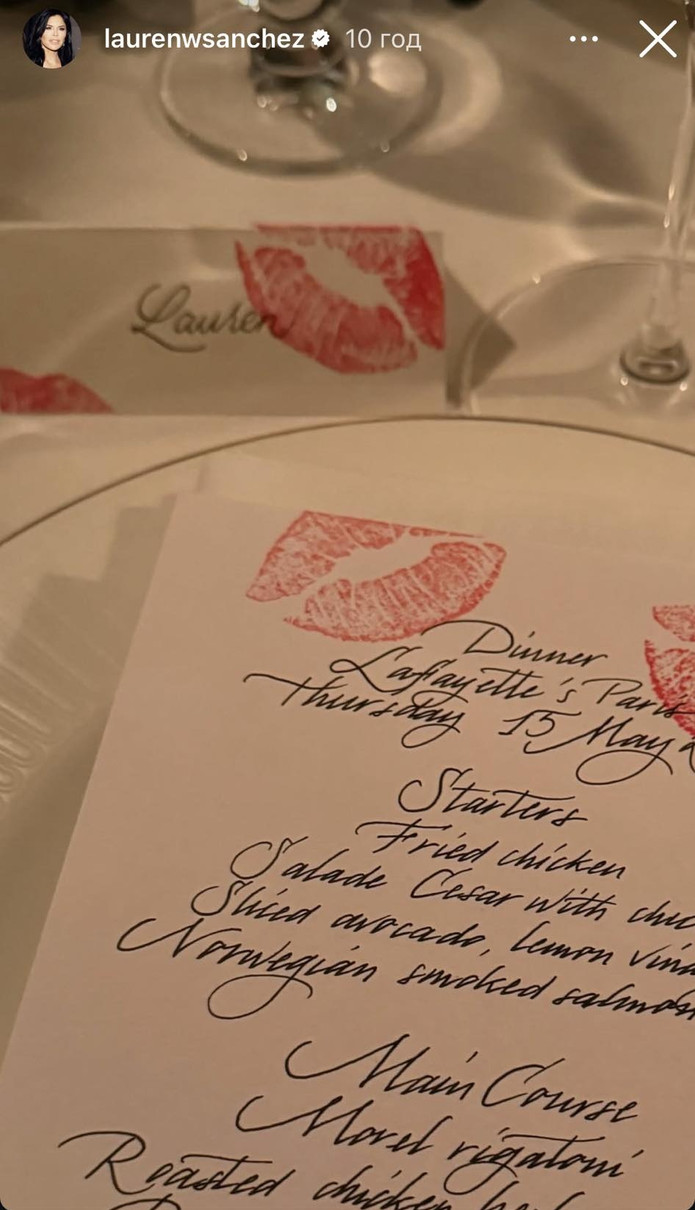 laurenwsanchez 10 год
Lauren
Dinner
Lafayette's Paris
Thursday 15 May
Starters
Fried chicken
Salade Cesar with
Sliced avocado, lemon
Norwegian smoked salmon
Main Course
Morel rigatoni
Roasted chicken